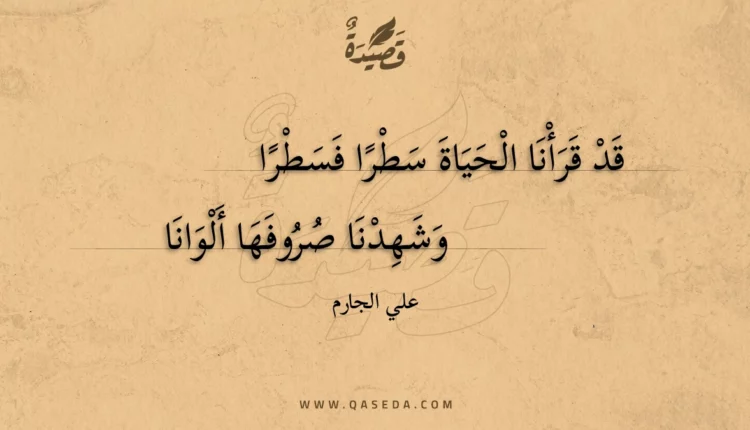 قَصِيْدَةٌ
قَدْ قَرَأْنَا الْحَيَاةَ سَطْرًا فَسَطْرًا
وَشَهِدْنَا صُرُوفَهَا أَلْوَانَا
علي الجارم
WWW.QASEDA.COM